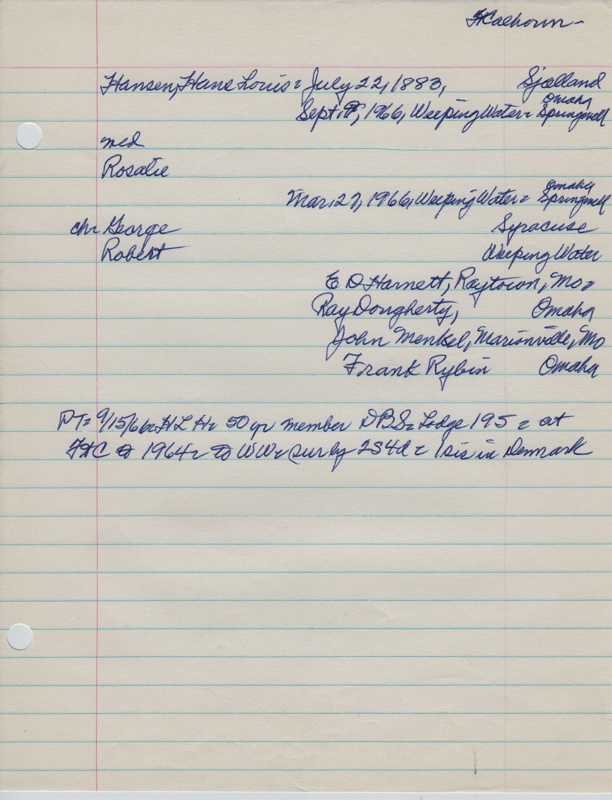 FtCalhoun
Hansen, Hans Louis = July 22, 1883, Sjælland
Omaha
Sept. 9, 1966, Weeping Water = Springwell
md
Rosalie
Omaha
Mar. 27, 1966, Weeping Water = Springwell
ch- George Syracuse
Robert Weeping Water
E D Harnett, Raytown, Mo
Ray Dougherty, Omaha
John Menkel, Marionville, Mo
Frank Rybin Omaha
PT= 9/15/66 H L H = 50 yr member DBS = Lodge 195 = at
FtC 1964 = to WW = sur by 2S4d = 1 sis in Denmark